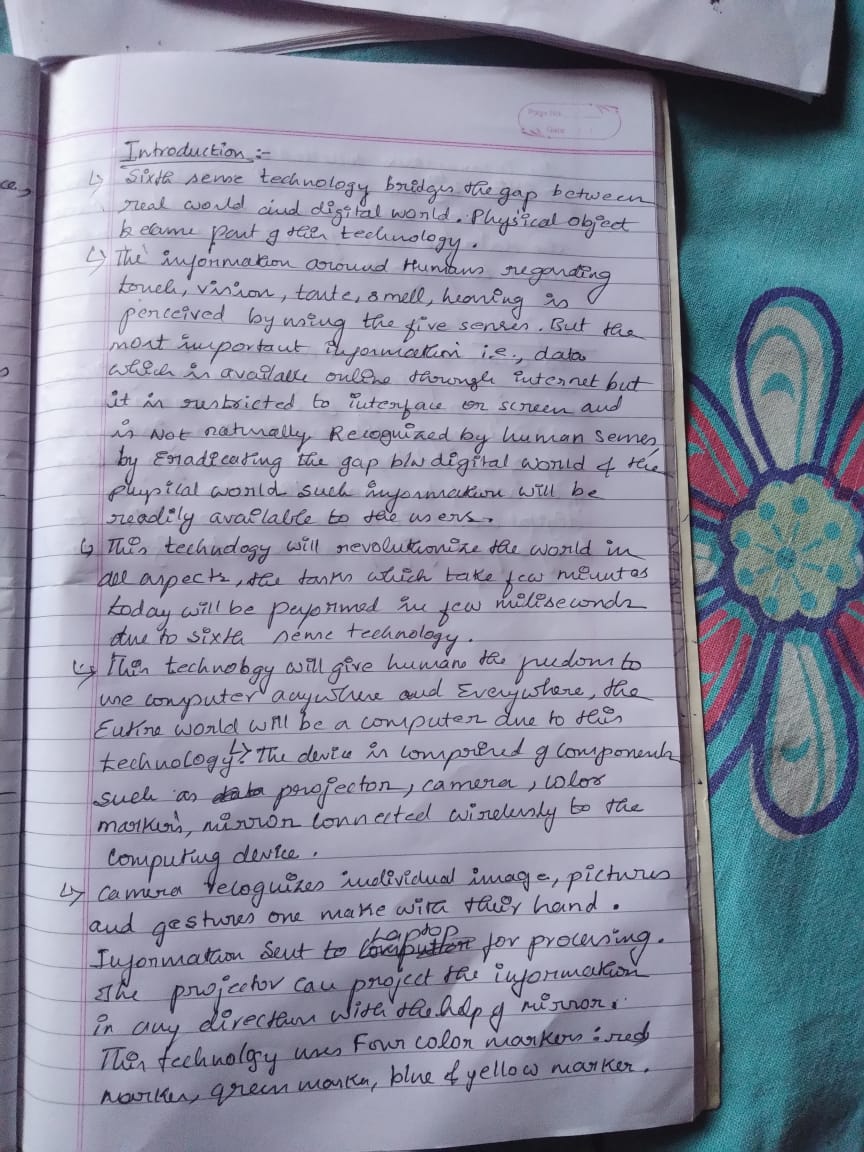 Page No.
Date
Introduction :-
↳ Sixth sense technology bridges the gap between
real world and digital world. Physical object
became part of this technology.
↳ The information around Humans regarding
touch, vision, taste, smell, hearing is
perceived by using the five senses. But the
most important information i.e., data
which is available online through internet but
it is restricted to interface or screen and
is Not naturally Recognized by human senses,
by Eradicating the gap b/w digital world & the
physical world such information will be
readily available to the users.
↳ This technology will revolutionize the world in
all aspects, the tasks which take few minutes
today will be performed in few miliseconds
due to sixth sense technology.
↳ This technology will give humans the freedom to
use computer anywhere and Everywhere, the
Entire world will be a computer due to this
technology. ↳ The device is comprised of components
such as data projector, camera, color
markers, mirror connected wirelessly to the
computing device.
↳ Camera recognizes individual image, pictures
and gestures one make with their hand.
Information Sent to Laptop for processing.
The projector can project the information
in any direction with the help of mirror.
This technolgy uses Four color markers : red
marker, green marker, blue & yellow marker.